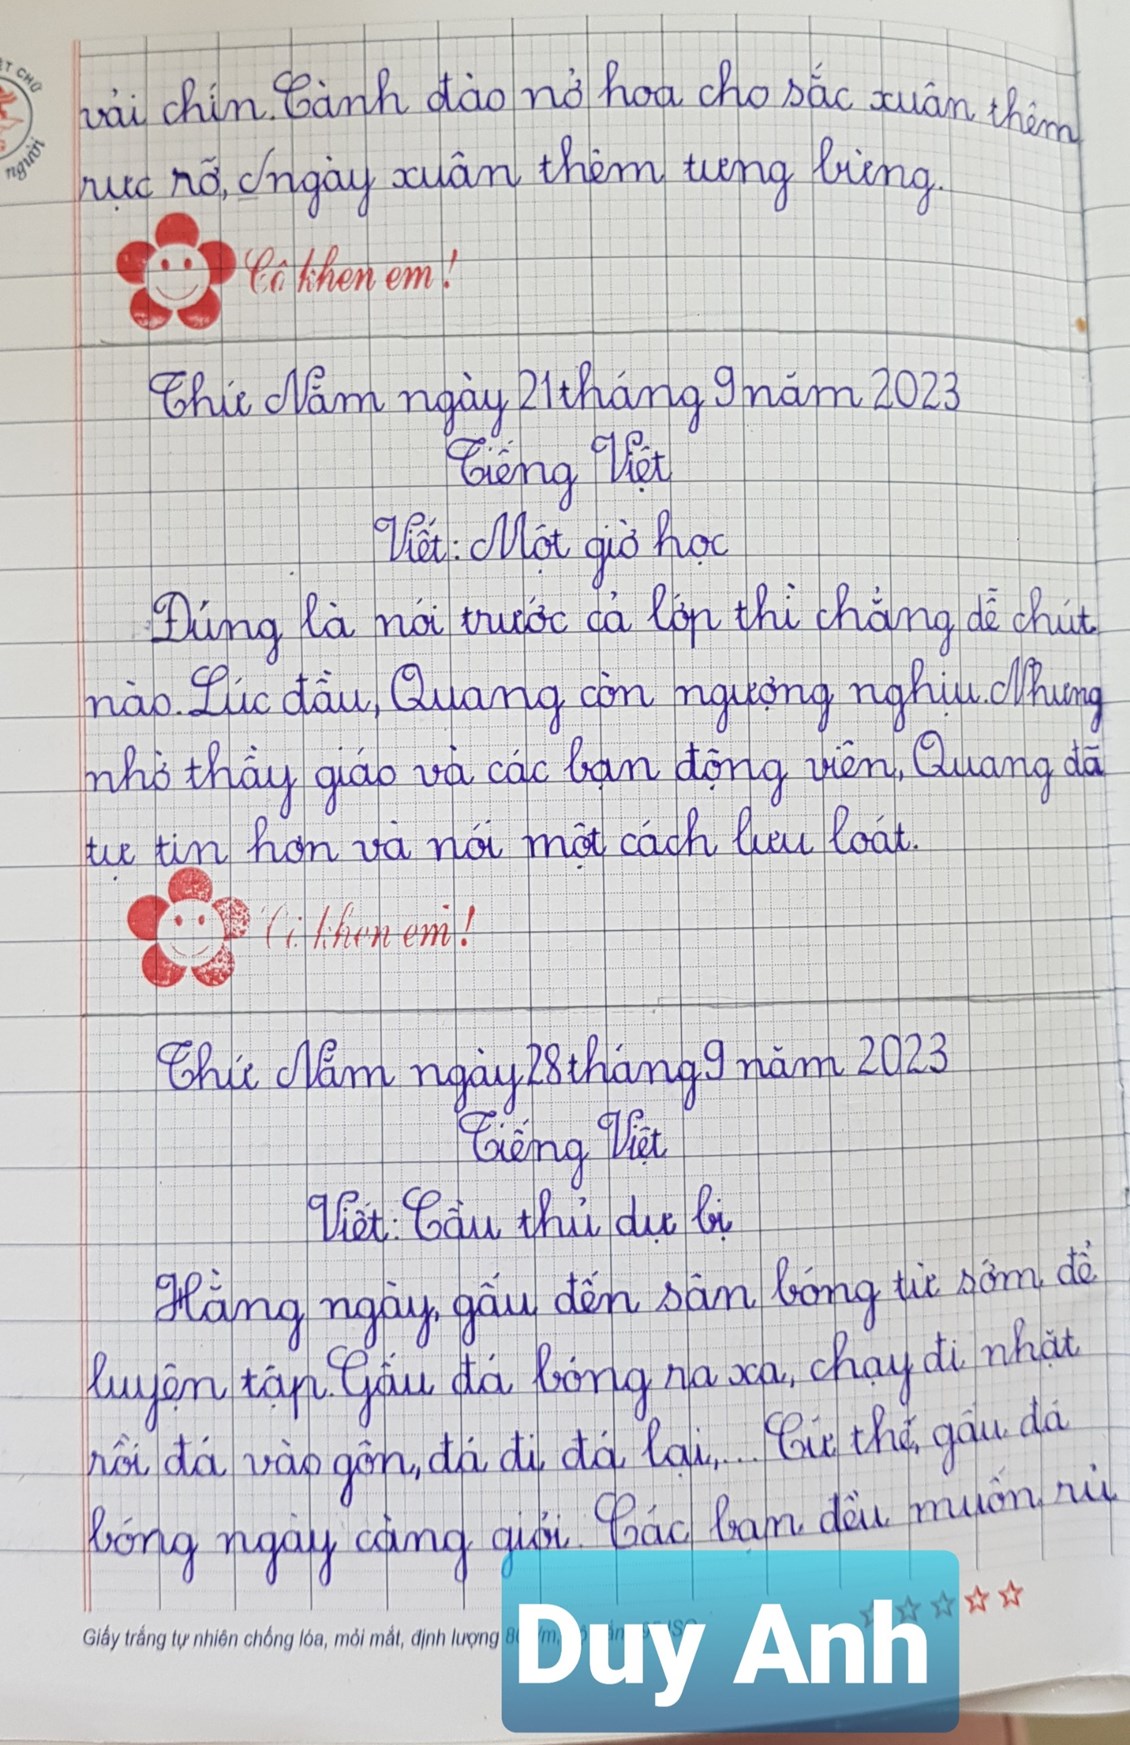 ệt chữ
người
vải chín. Cành đào nở hoa cho sắc xuân thêm
rực rỡ, Ngày xuân thêm tưng bừng.
Cô khen em!
Thứ Năm ngày 21 tháng 9 năm 2023
Tiếng Việt
Viết: Một giờ học
Đúng là nói trước cả lớp thì chẳng dễ chút
nào. Lúc đầu, Quang còn ngượng nghịu. Nhưng
nhờ thầy giáo và các bạn động viên, Quang đã
tự tin hơn và nói một cách lưu loát.
Cô khen em!
Thứ Năm ngày 28 tháng 9 năm 2023
Tiếng Việt
Viết: Cầu thủ dự bị
Hằng ngày, gấu đến sân bóng từ sớm để
luyện tập. Gấu đá bóng ra xa, chạy đi nhặt
rồi đá vào gôn, đá đi đá lại,... Cứ thế, gấu đá
bóng ngày càng giỏi. Các bạn đều muốn rủ
Giấy trắng tự nhiên chống lóa, mỏi mắt, định lượng
Duy Anh